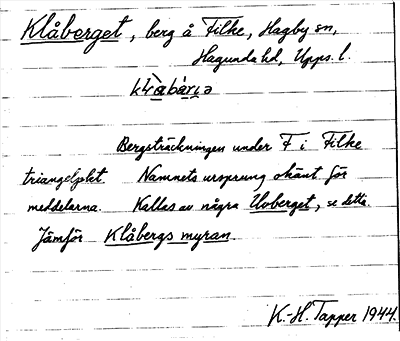 Klåberget, berg å Filke, Hagby sn,
Hagunda hd, Upps. l.
Bergsträckningen under F i Filke
triangelpkt. Namnets ursprung okänt för
meddelarna. Kallas av några Uvberget, se detta.
Jämför Klåbergs myran.
K.-H. Tapper 1944.